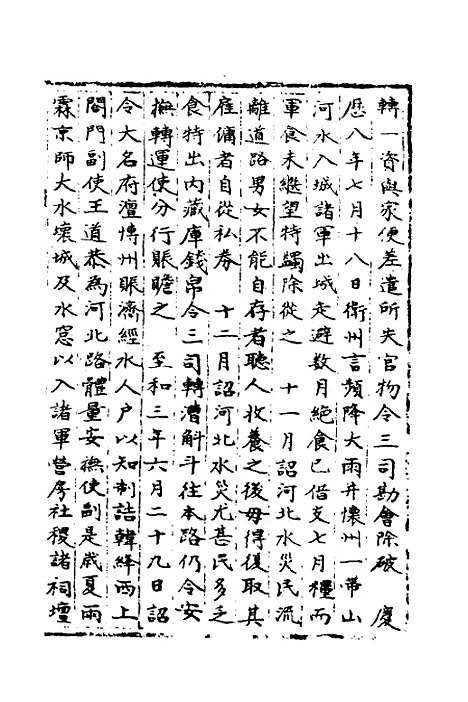 轉一資與家便差遣所失官物令三司勘會除破　慶
歷八年七月十八日衛州言頻降大雨并懷州一帶山
河水入城諸軍出城走避數月絕食已借支七月糧而
軍食未繼望特蠲除從之　十一月詔河北水災民流
離道路男女不能自存者聽人收養之後毋得復取其
雇傭者自從私券　十二月詔河北水災尤甚民多乏
食特出內藏庫錢帛令三司轉漕斛斗往本路仍令安
撫轉運使分行賑贍之　至和三年六月二十九日詔
令大名府澶博州賑濟經水人户以知制誥韓絳西上
閤門副使王道恭為河北路體量安撫使副是歲夏雨
霖京師大水壞城及水窓以入諸軍營房社稷諸祠壇